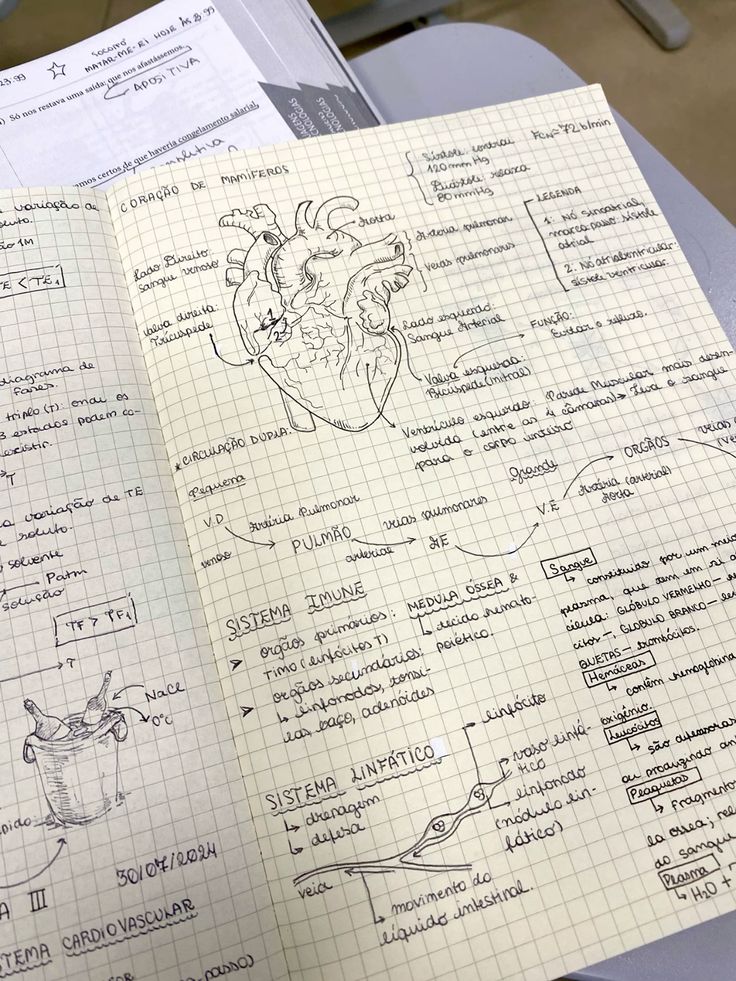 23:99
SOCORRO
MATAR-ME-EI HOJE ÀS 23:99
Só nos restava uma saída: que nos afastássemos.
APOSITIVA
amos certos de que haveria congelamento salarial.
variação de
soluto.
ão 1M
TE < TE₁
diagrama de
fases.
triplo (T): onde os
3 estados podem co-
existir.
T
a variação de TE
e soluto.
solvente
Patm
solução
TF > TF₁
T
NaCl
0°C
pido
30/07/2024
A III
TEMA CARDIOVASCULAR
CORAÇÃO DE MAMÍFEROS
Sístole: contrai
120mmHg
Diástole: relaxa
80mmHg
FCN≈72 b/min
LEGENDA
1: Nó sinoatrial,
marca passo: sístole
atrial
2. Nó atrioventricular:
sístole ventricular.
Aorta
Artéria pulmonar
Veias pulmonares
Lado Direito:
Sangue venoso
Valva direita:
Tricúspede
1
2
Lado esquerdo:
Sangue Arterial
Valva esquerda:
Bicúspede (mitral)
FUNÇÃO:
Evitar o refluxo.
Ventrículo esquerdo: (Parede Muscular mais desen-
volvida (entre as 4 câmaras) → Leva o sangue
para o corpo inteiro
*CIRCULAÇÃO DUPLA:
Pequena
V.D
venoso
Artéria Pulmonar
PULMÃO
arterial
veias pulmonares
AE
Grande
V.E
Artéria (arterial)
Aorta
ORGÃOS
veias
SISTEMA IMUNE
➤ orgãos primários:
Timo (linfócitos T)
MEDULA ÓSSEA &
tecido hemato-
poiético.
➤ orgãos secundários:
↳ linfonodos, tonsi-
las, baço, adenóides
SISTEMA LINFÁTICO
↳ drenagem
↳ defesa
linfócito
vaso linfá-
tico
linfonodo
(nódulo lin-
fático)
veia
movimento do
líquido intestinal.
Sangue
↳ constituído por um meio
plasma, que tem em si a
célula: GLÓBULO VERMELHO -
citos -, GLÓBULO BRANCO -
QUETAS - trombócitos.
Hemáceas
↳ contém hemoglobina
oxigênio.
Leucócitos
↳ são defensoras
ou produzindo an
Plaquetas
↳ Fragmento
la ossea; rel
do sangue
Plasma
↳ H₂O +